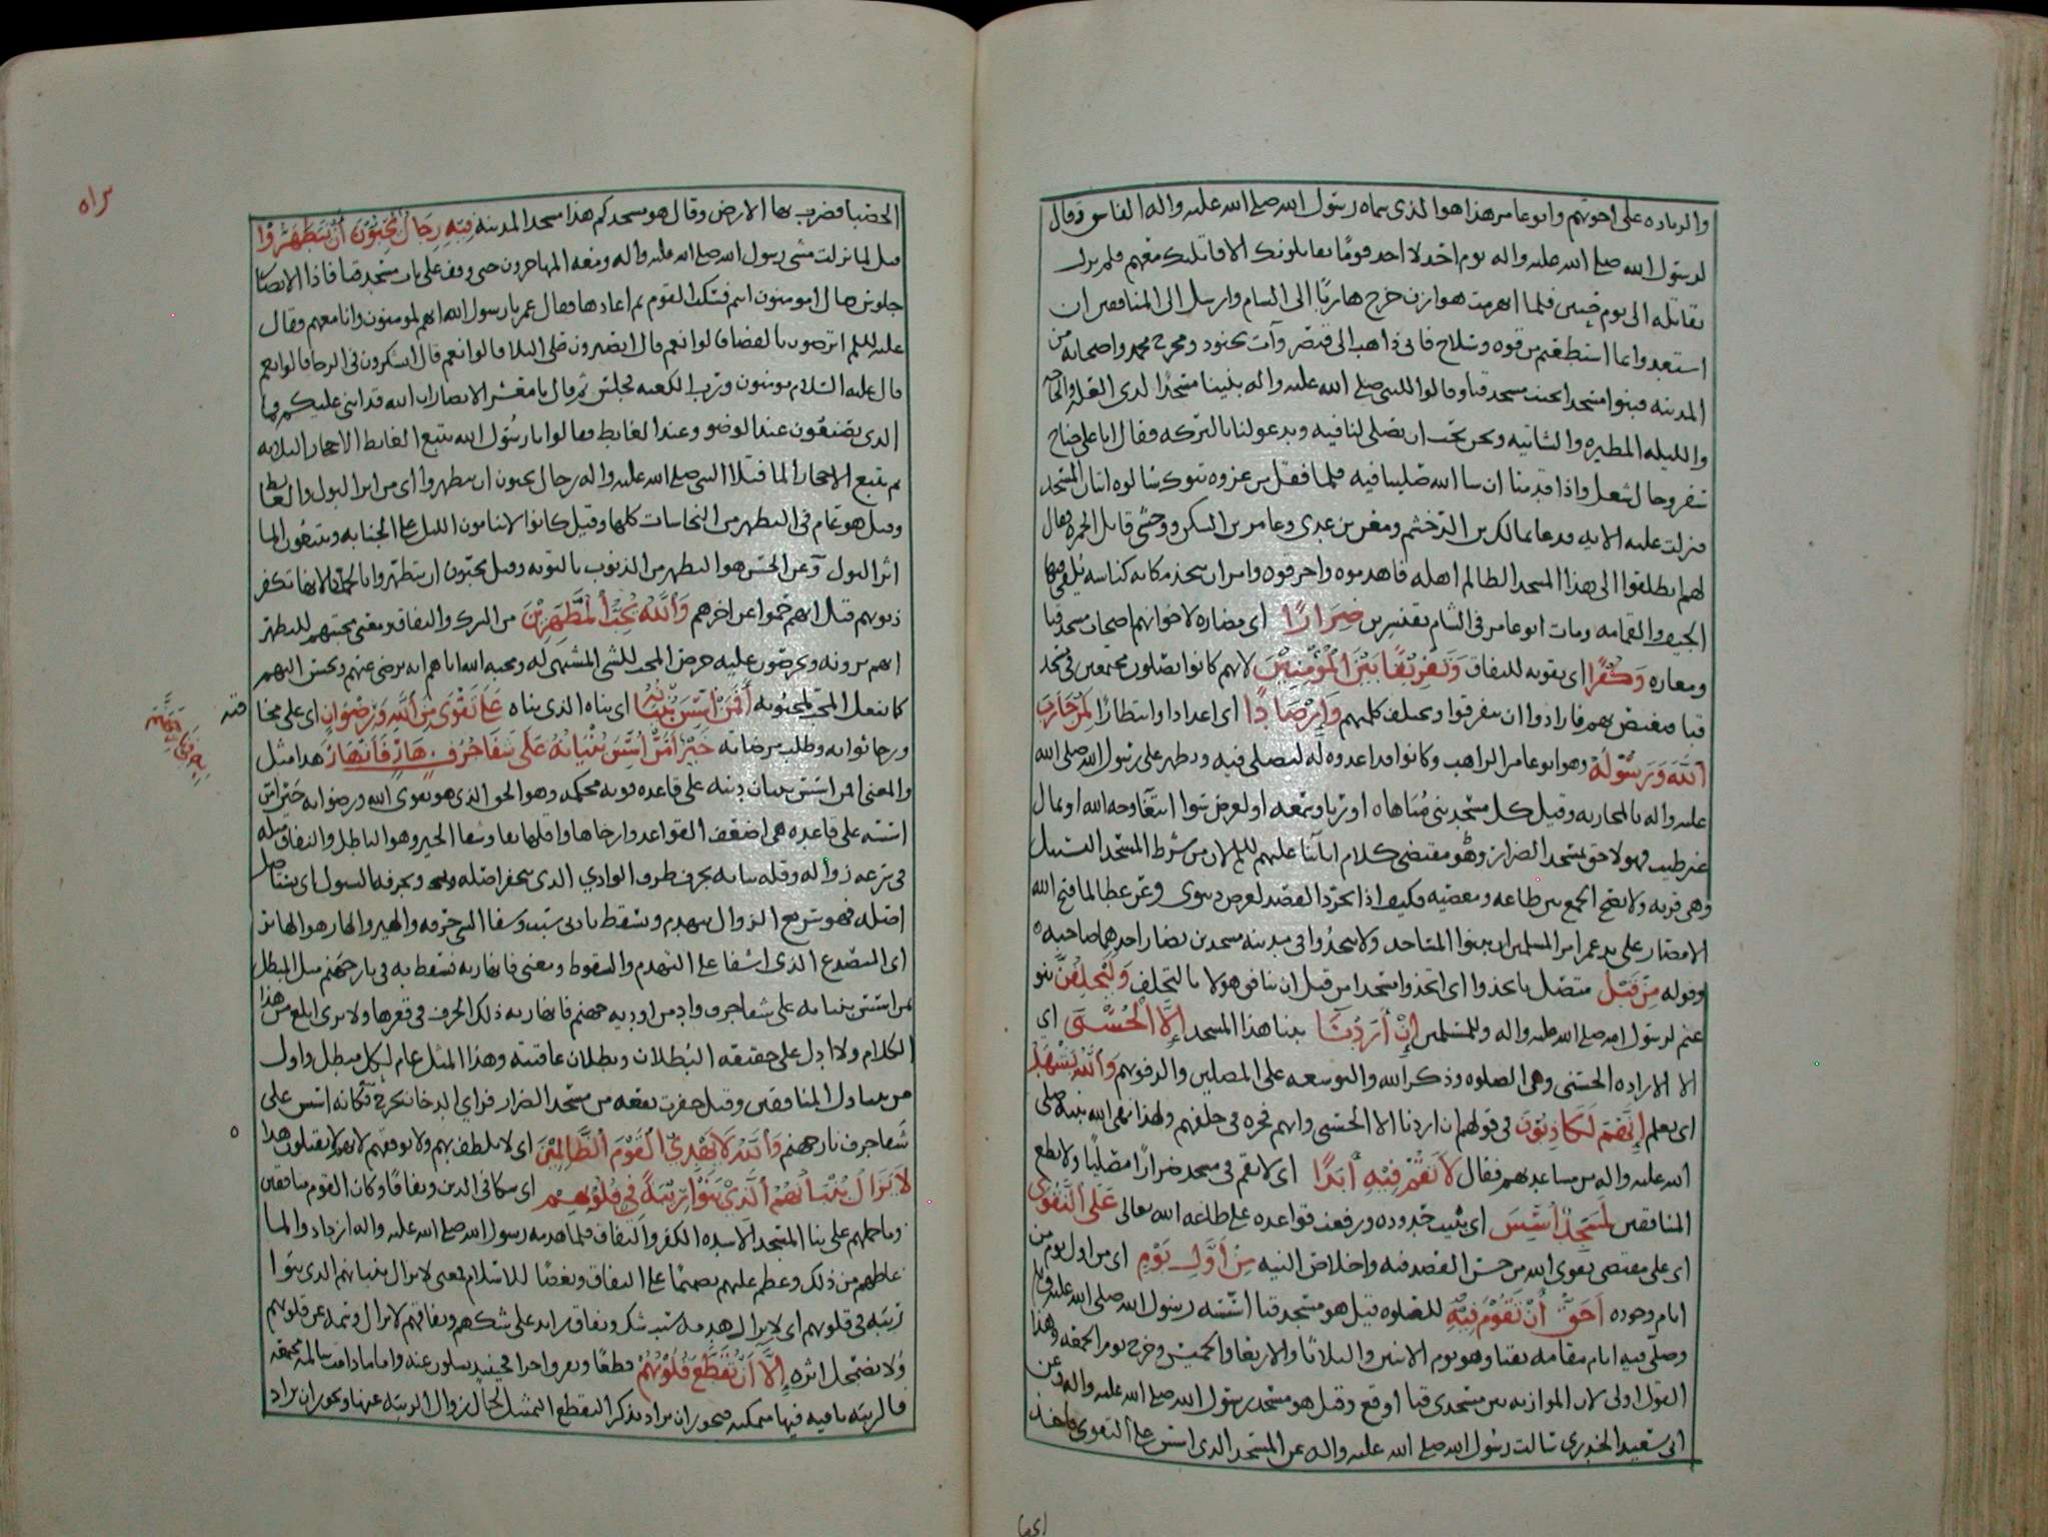 والزياده على اخوتهم وابو عامر هذا هو الذي سماه رسول الله صلى الله عليه واله الفاسق وقال
لرسول الله صلى الله عليه واله يوم احد لا اجد قومًا يقاتلونك الا قاتلتك معهم فلم يزل
يقاتله الى يوم حنين فلما انهزمت هوازن خرج هاربًا الى الشام وارسل الى المنافقين ان
استعدوا بما استطعتم من قوه وسلاح فانى ذاهب الى قيصر وآت بجنود ومخرج محمد واصحابه من
المدينه فبنوا مسجدا بجنب مسجد قبا وقالوا للنبي صلى الله عليه واله بنينا مسجدًا لذى العله والحاجه
والليله المطيره والشاتيه ونحن نحب ان تصلى لنا فيه وتدعو لنا بالبركه فقال انا على جناح
سفر وحال شغل واذا قدمنا ان شا الله صلينا فيه فلما قفل من غزوه تبوك سالوه اتيان المسجد
فنزلت عليه الايه فدعا بمالك بن الدخشم ومعن بن عدي وعامر بن السكن ووحشى قاتل الحمزه فقال
لهم انطلقوا الى هذا المسجد الظالم اهله فاهدموه واحرقوه وامر ان يتخذ مكانه كناسه يلقى فيها
الجيف والقمامه ومات ابو عامر فى الشام بقنسرين ضِرَارًا اى مضاره لاخوانهم اصحاب مسجد قبا
ومعازه وَكُفْرًا اى تقويه للنفاق وَتَفْرِيْقًا بَيْنَ الْمُؤْمِنِيْنَ لانهم كانوا يصلون مجتمعين فى مسجد
قبا فيغتص بهم فارادوا ان يتفرقوا وتختلف كلمتهم وَاِرْصَادًا اى اعدادا وانتظارًا لِمَنْ حَارَبَ
اللهَ وَرَسُوْلَهُ وهو ابو عامر الراهب وكانوا قد اعدوه له ليصلى فيه ويظهر على رسول الله صلى الله
عليه واله بالمحاربه وقيل كل مسجد بنى مباهاه او ريا وسمعه او لغرض سوا ابتغا وجه الله او بمال
غير طيب فهو لاحق بمسجد الضرار وهو مقتضى كلام ابائنا عليهم السلم لان من شرط المسجد التسبيل
وهى قربه ولا يصح الجمع بين طاعه ومعصيه فكيف اذا تجرد القصد لغرض دنيوى وعن عطا لما فتح الله
الامصار على يد عمر امر المسلمين ان يبنوا المساجد ولا يتخذوا فى مدينه مسجدين يضار احدهما صاحبه
وقوله مِنْ قَبْلُ متصل باتخذوا اى اتخذوا مسجدا من قبل ان ينافق هولا بالتخلف وَلَيَحْلِفُنَّ بنو
غنم لرسول الله صلى الله عليه واله وللمسلمين اِنْ اَرَدْنَا ببنا هذا المسجد اِلَّا الْحُسْنَى اى
الا الاراده الحسنى وهى الصلوه وذكر الله والتوسعه على المصلين والرفق بهم وَاللهُ يَشْهَدُ
اى يعلم اِنَّهُمْ لَكَاذِبُوْنَ فى قولهم ان اردنا الا الحسنى وانهم فجره فى حلفهم ولهذا نهى الله نبيه صلى
الله عليه واله من مساعدتهم فقال لَا تَقُمْ فِيْهِ اَبَدًا اى لا تقم فى مسجد ضرارًا مصليًا ولا تطع
المنافقين لَمَسْجِدٌ اُسِّسَ اى بنيت حدوده ورفعت قواعده على طاعه الله تعالى عَلَى التَّقْوَى
اى على مقتضى تقوى الله من حسن القصد فيه واخلاص النيه مِنْ اَوَّلِ يَوْمٍ اى من اول يوم من
ايام وجوده اَحَقُّ اَنْ تَقُوْمَ فِيْهِ للصلوه قيل هو مسجد قبا اسسه رسول الله صلى الله عليه واله
وصلى فيه ايام مقامه بقبا وهو يوم الاثنين والثلاثا والاربعا والخميس وخرج يوم الجمعه وهذا
القول اولى لان الموازنه بين مسجدى قبا اوقع وقيل هو مسجد رسول الله صلى الله عليه واله وعن
ابى سعيد الخدرى سالت رسول الله صلى الله عليه واله عن المسجد الذى اسس على التقوى فاخذ
الحصبا فضرب بها الارض وقال هو مسجدكم هذا مسجد المدينه فِيْهِ رِجَالٌ يُحِبُّوْنَ اَنْ يَتَطَهَّرُوْا
قيل لما نزلت مشى رسول الله صلى الله عليه واله ومعه المهاجرون حتى وقف على باب مسجد قبا فاذا الانصار
جلوس فقال امومنون انتم فسكت القوم ثم اعادها فقال عمر يا رسول الله انهم لمومنون وانا معهم فقال
عليه السلم اترضون بالقضا قالوا نعم قال اتصبرون على البلا قالوا نعم قال اتشكرون فى الرخا قالوا نعم
قال عليه السلام مومنون ورب الكعبه فجلس ثم قال يا معشر الانصار ان الله قد اثنى عليكم فما
الذى تصنعون عند الوضو وعند الغايط فقالوا يا رسول الله نتبع الغايط الاحجار الثلاثه
ثم نتبع الاحجار الما فتلا النبى صلى الله عليه واله رجال يحبون ان يتطهروا اى من اثر البول والغايط
وقيل هو عام فى التطهر من النجاسات كلها وقيل كانوا لا ينامون الليل على الجنابه ويتبعون الما
اثر البول وعن الحسن هو التطهر من الذنوب بالتوبه وقيل يحبون ان يتطهروا بالحما لانها تكفر
ذنوبهم قيل انهم حموا عن اخرهم وَاللهُ يُحِبُّ الْمُطَّهِّرِيْنَ من الشرك والنفاق ومعنى محبتهم للتطهر
انهم يرونه ويحرصون عليه حرص المحب للشى المشتهى له ومحبه الله اياهم انه يرضى عنهم ويحسن اليهم
كما يفعل المحب لمحبوبه اَفَمَنْ اَسَّسَ بُنْيَانَهُ اى بناه الذى بناه عَلَى تَقْوَى مِنَ اللهِ وَرِضْوَانٍ اى على مخا
فته
ورجا ثوابه وطلب مرضاته خَيْرٌ اَمْ مَّنْ اَسَّسَ بُنْيَانَهُ عَلَى شَفَا جُرُفٍ هَارٍ فَانْهَارَ هذا مثل
والمعنى افمن اسس بنيان دينه على قاعده قويه محكمه وهو الحق الذى هو تقوى الله ورضوانه خير امن
اسسه على قاعده هى اضعف القواعد وارخاها واقلها بقا وشفا الجير وهو الباطل والنفاق مثله
فى سرعه زواله وقله ثباته بجرف طرف الوادي الذى ينحفر اصله ويجرفه السيول اى يستاصل
اصله فهو سريع الزوال ينهدم ويسقط بادنى سبب وشفا الشى حرفه والهير والهار هو الهائر
اى المتصدع الذى اشفا على التهدم والسقوط ومعنى فانهار به فسقط به فى نار جهنم مثل المبطل
بمن اسس بنيانه على شفا جرف واد من اوديه جهنم فانهار به ذلك الجرف فى قعرها ولا ترى ابلغ من هذا
الكلام ولا ادل على حقيقه البطلان وبطلان عاقبته وهذا المثل عام لكل مبطل واول
من تناول المنافقين وقيل حفرت بقعه من مسجد الضرار فراي الدخان يخرج فكانه اسس على
شفا جرف نار جهنم وَاللهُ لَا يَهْدِى الْقَوْمَ الظَّالِمِيْنَ اى لا يلطف بهم ولا يوفقهم لانهم لا يقبلون هدا
لَا يَزَالُ بُنْيَانُهُمُ الَّذِىْ بَنَوْا رِيْبَةً فِىْ قُلُوْبِهِمْ اى شكا فى الدين ونفاقًا وكان القوم منافقين
وما حملهم على بنا المسجد الا شده الكفر والنفاق فلما هدمه رسول الله صلى الله عليه واله ازدادوا لما
غاظهم من ذلك وعظم عليهم تصميمًا على النفاق وبغضًا للاسلام فمعنى لا يزال بنيانهم الذى بنوا
ريبه فى قلوبهم اى لا يزال هدمه سبب شك ونفاق زايد على شكهم ونفاقهم لا يزال وسمه عن قلوبهم
ولا يضمحل اثره اِلَّا اَنْ تُقَطَّعَ قُلُوْبُهُمْ قطعًا وتفرق اجزا فحينئذ يسلون عنه واما ما دامت سالمه مجتمعه
فالريبه باقيه فيها ممكنه فيجوز ان يراد بذكر التقطع التمثيل لحال زوال الريبه عنها ويجوز ان يراد